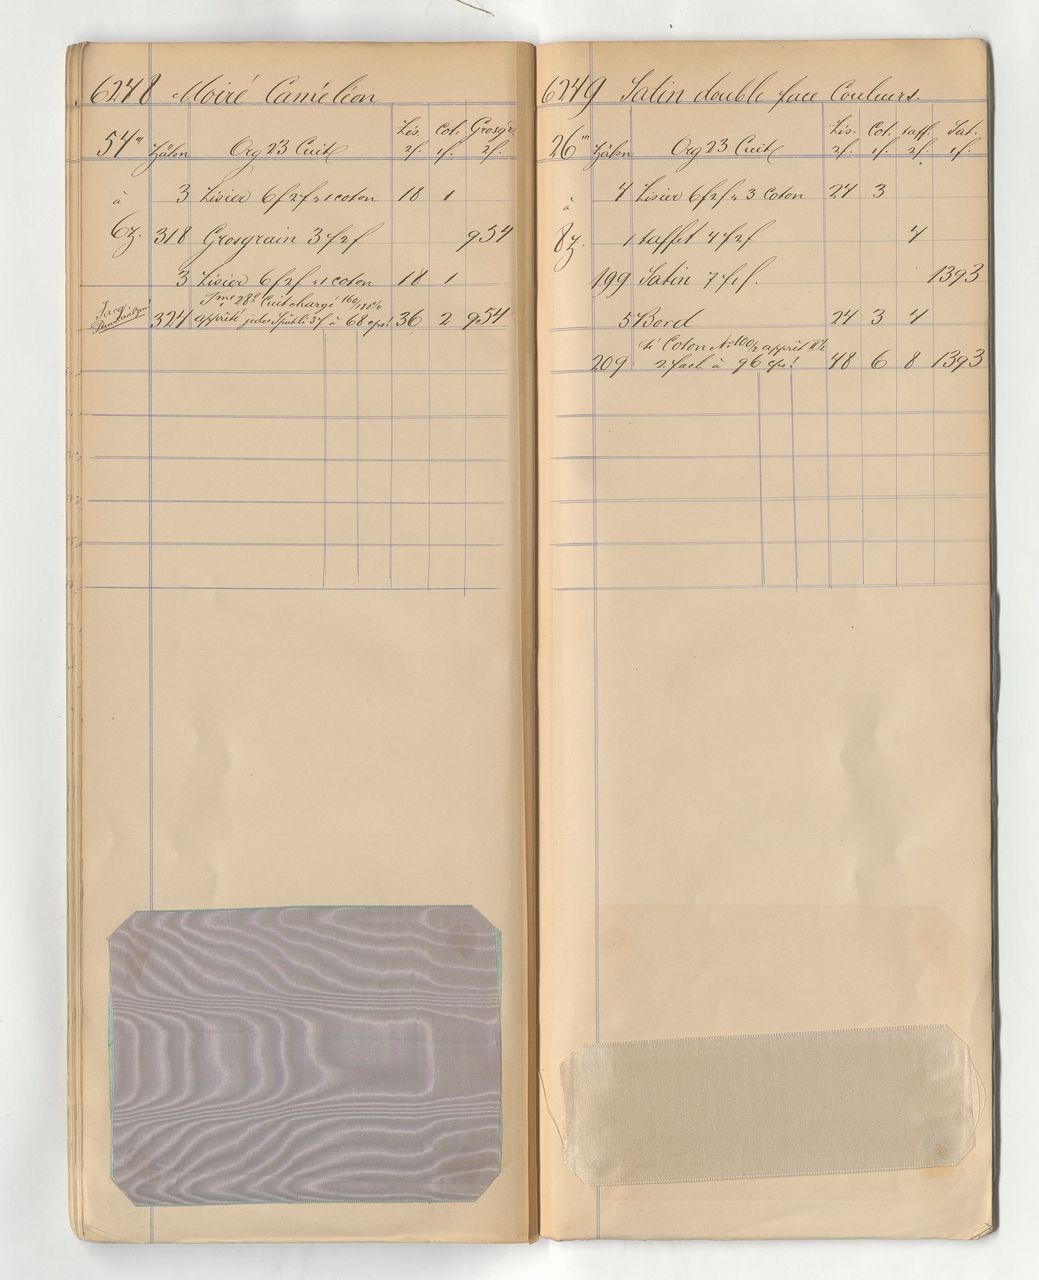 6248 Moiré Caméléon
54''' Zähn Org 23 Cuit Lis. 2f. Cot. 1f. Grosgr. 2f.
à 3 Lisier 6f2f 1 coton 18 1
6z. 318 Grosgrain 3f2f 954
3 Lisier 6f2f 1 coton 18 1
Tme 28r Cuit chargé 160/180%
324 apprêté jedes Spühli 3f à 68 cps! 36 2 954
6249 Satin double face Couleurs.
26''' Zähn Org 23 Cuit Lis. 2f. Cot. 1f. taff. 2f. Sat. 1f.
à 4 Lisier 6f2f 3 Coton 24 3
8z. 1 taffet 4f2f 4
199 Satin 7f1f. 1393
5 Bord 24 3 4
Coton No 100/2 apprêt
209 2 fach à 96 cps! 48 6 8 1393